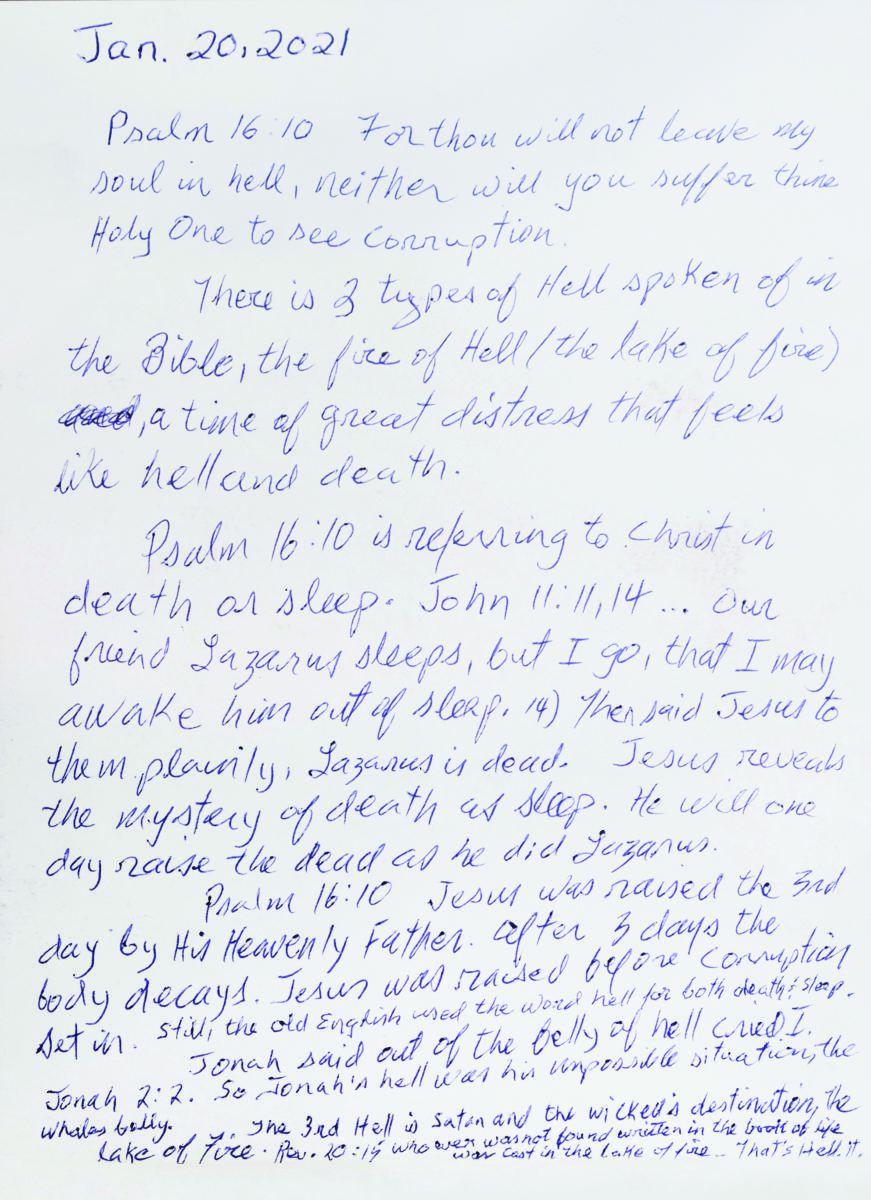 Jan. 20, 2021
Psalm 16:10 For thou will not leave my
soul in hell, neither will you suffer thine
Holy One to see corruption.
There is 3 types of Hell spoken of in
the Bible, the fire of Hell (the lake of fire)
, a time of great distress that feels
like hell and death.
Psalm 16:10 is referring to Christ in
death or sleep. John 11:11,14 ... Our
friend Lazarus sleeps, but I go, that I may
awake him out of sleep. 14) Then said Jesus to
them plainly, Lazarus is dead. Jesus reveals
the mystery of death as sleep. He will one
day raise the dead as he did Lazarus.
Psalm 16:10 Jesus was raised the 3rd
day by His Heavenly Father. After 3 days the
body decays. Jesus was raised before corruption
set in. Still, the old English used the word hell for both death & sleep.
Jonah said out of the belly of hell cried I.
Jonah 2:2. So Jonah's hell was his impossible situation, the
whales belly. The 3rd Hell is Satan and the wicked's destination, the
lake of Fire. Rev. 20:15 whoever was not found written in the book of life
was cast in the lake of fire - That's Hell.